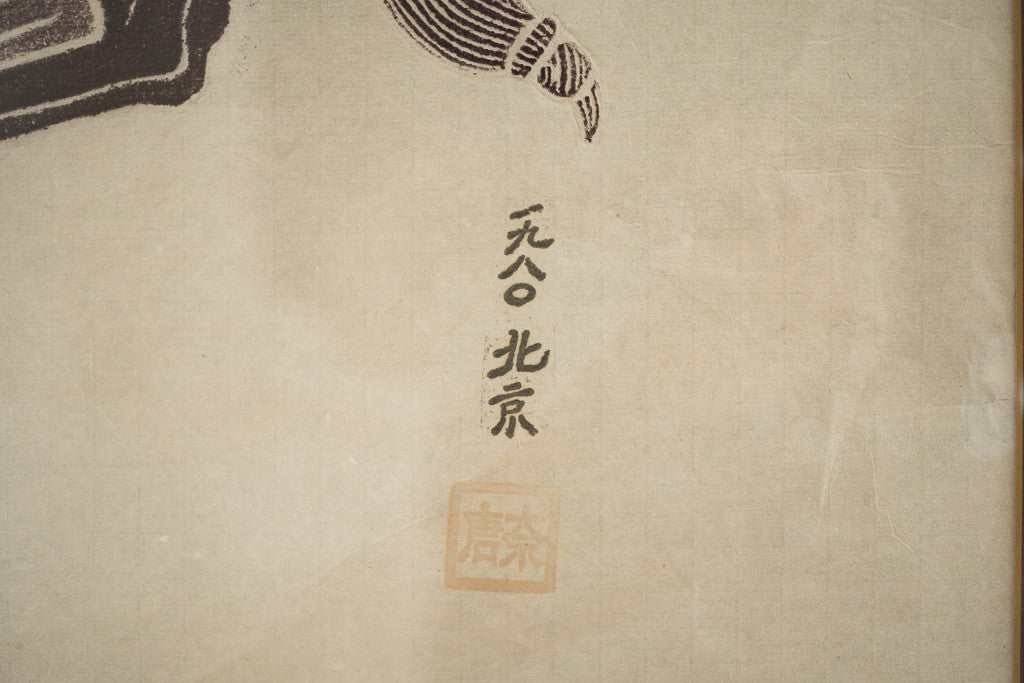 一九八〇 北京